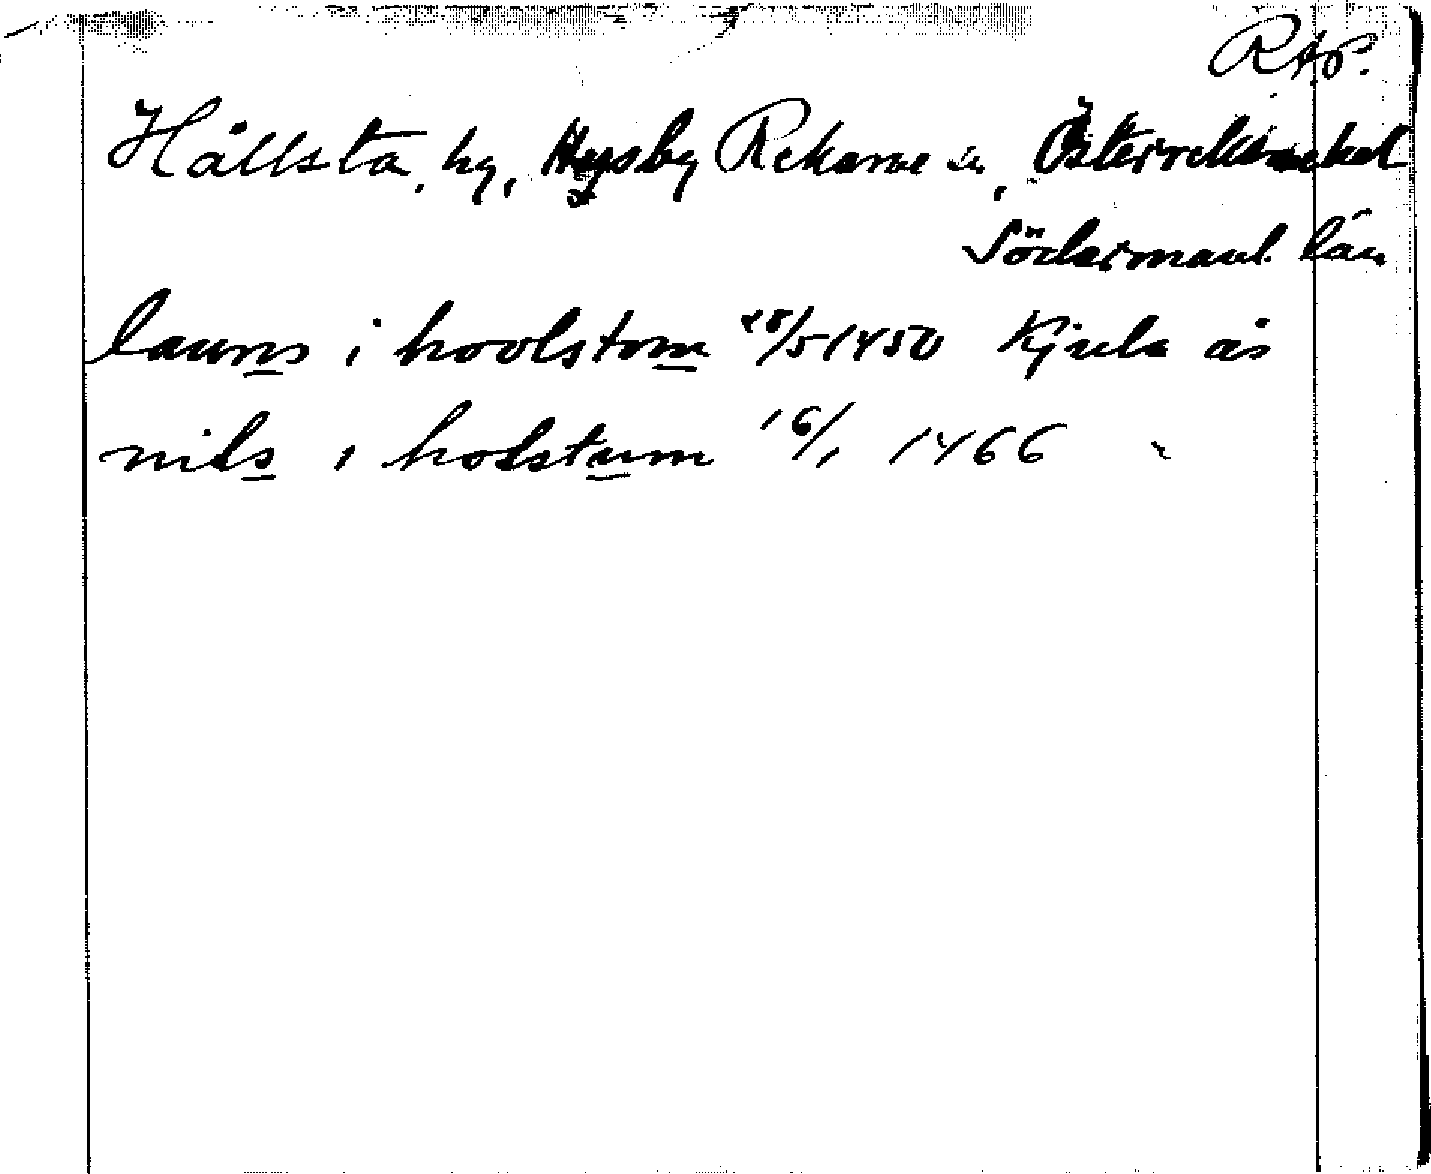 RAp.
Hållsta, by, Husby Rekarne sn, Österrekarnehd
Södermanl. län
laurns i hoolstom 28/5 1450 Kjula ås
nils i holstum 16/1 1466 "